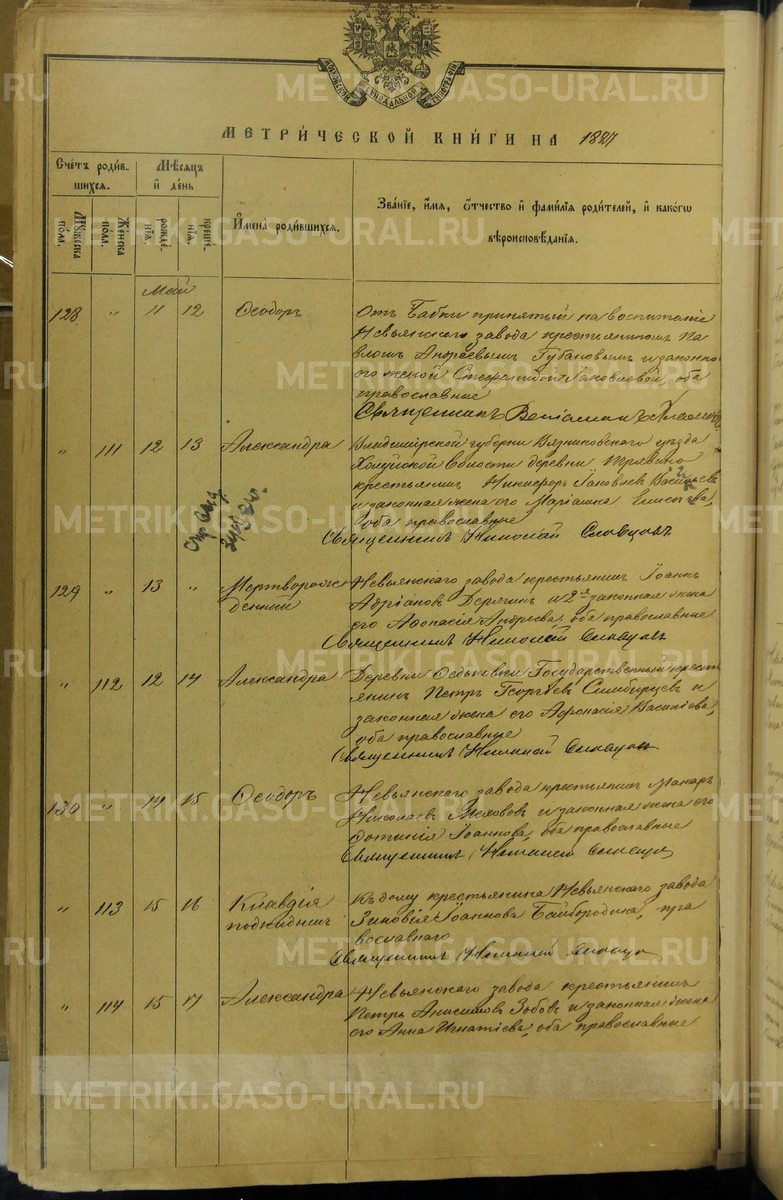 МЕТРИ́ЧЕСКОЙ КНИ́ГИ НА 1887
Сче́тъ роди́в-
шихся.
Мѣ́сяцъ
и҆ де́нь
Му́жеска
по́ла.
Же́нска
по́ла.
рожде́-
нїѧ.
креще́-
нїѧ.
И҆мена̀ роди́вшихся.
Зва́нїе, и҆́мя, ѻ҆́тчество и҆ фами́лїѧ роди́телей, и҆ како́гѡ
вѣроисповѣ́данїѧ.
Май
128 " 11 12 Ѳеодоръ
Отъ Бабки принятый на воспитаніе
Невьянскаго завода крестьяниномъ Па
вломъ Андреевымъ Губановымъ и законно
его женой Стефанидой Іаковлевой, оба
православные
Священникъ Веніаминъ
" 111 12 13 Александра
Владимірской губерни Вязниковскаго уѣзда
Холуйской волости деревни
крестьянинъ Никифоръ Іаковлевъ
и законная жена его Маріамна Елисѣева,
оба православные
Священникъ Николай Словцовъ
129 " 13 " Мертворож-
денный
Невьянскаго завода крестьянинъ Іоаннъ
Адріановъ Дерягинъ и 2я законная жена
его Аѳанасія Андреева, оба православные
Священникъ Николай Словцовъ
" 112 12 14 Александра
Деревни Ѳедьковки Государственный крест
янинъ Петръ Георгіевъ Симбирцевъ и
законная жена его Аѳанасія Василіева,
оба православные
Священникъ Николай Словцовъ
130 " 14 15 Ѳеодоръ
Невьянскаго завода крестьянинъ Макаръ
Николаевъ Меховов и законная жена его
Фотинія Іоаннова, оба православные
Священникъ Николай Словцовъ
" 113 15 16 Клавдія
подкидышъ
Къ дому крестьянина Невьянскаго завода
Зиновія Іоаннова Байбородина, пра
вославнаго
Священникъ Николай Словцовъ
" 114 15 17 Александра
Невьянскаго завода крестьянинъ
Петръ Анисимовъ Зобовъ и законная жена
его Анна Игнатіева, оба православные
METRIKI.GASO-URAL.RU